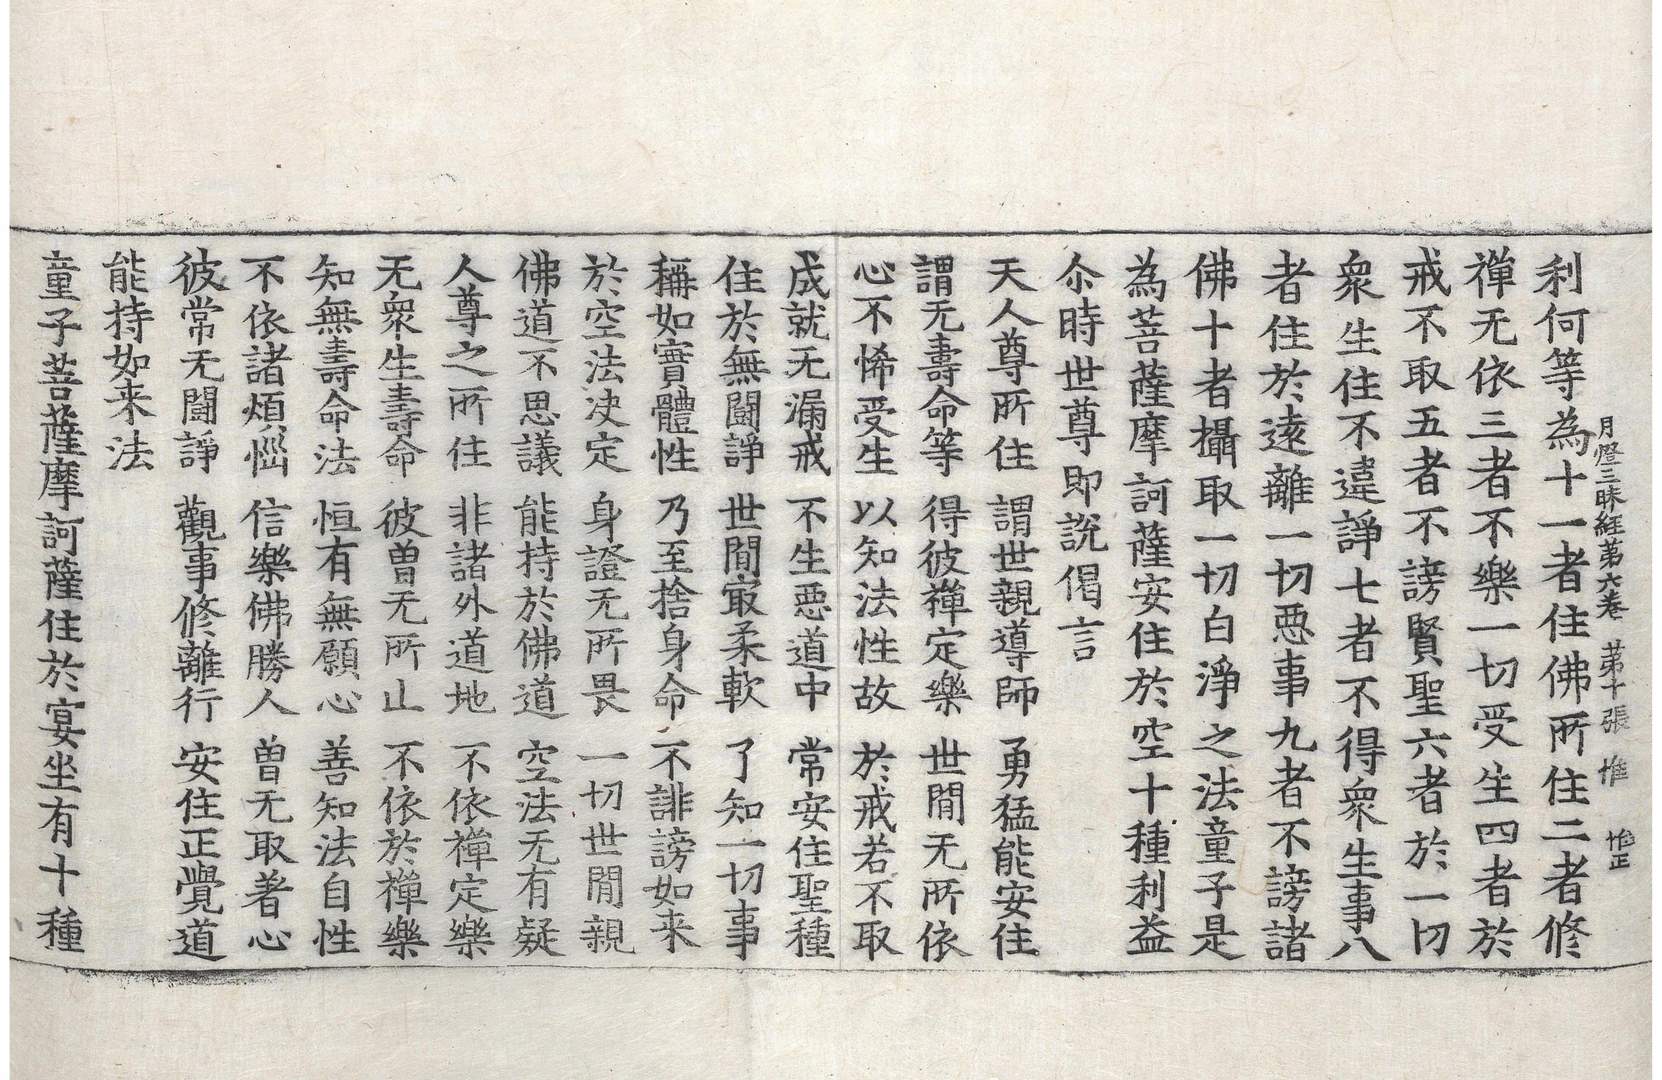 月燈三昧經第六卷　第十張　惟　惟正
利何等為十一者住佛所住二者修
禪无依三者不樂一切受生四者於
戒不取五者不謗賢聖六者於一切
衆生住不違諍七者不得衆生事八
者住於遠離一切惡事九者不謗諸
佛十者攝取一切白淨之法童子是
為菩薩摩訶薩安住於空十種利益
尒時世尊即說偈言
天人尊所住　謂世親導師　勇猛能安住
謂无壽命等　得彼禪定樂　世閒无所依
心不悕受生　以知法性故　於戒若不取
成就无漏戒　不生惡道中　常安住聖種
住於無鬪諍　世閒㝡柔軟　了知一切事
稱如實體性　乃至捨身命　不誹謗如来
於空法决定　身證无所畏　一切世閒親
佛道不思議　能持於佛道　空法无有疑
人尊之所住　非諸外道地　不依禪定樂
无衆生壽命　彼曽无所止　不依於禪樂
知無壽命法　恒有無願心　善知法自性
不依諸煩惱　信樂佛勝人　曽无取著心
彼常无鬪諍　觀事修離行　安住正覺道
能持如来法
童子菩薩摩訶薩住於宴坐有十種